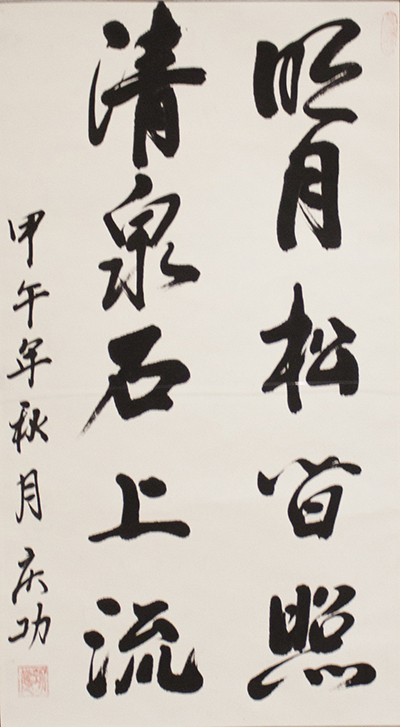 明月松间照
清泉石上流
甲午年秋月 庆功